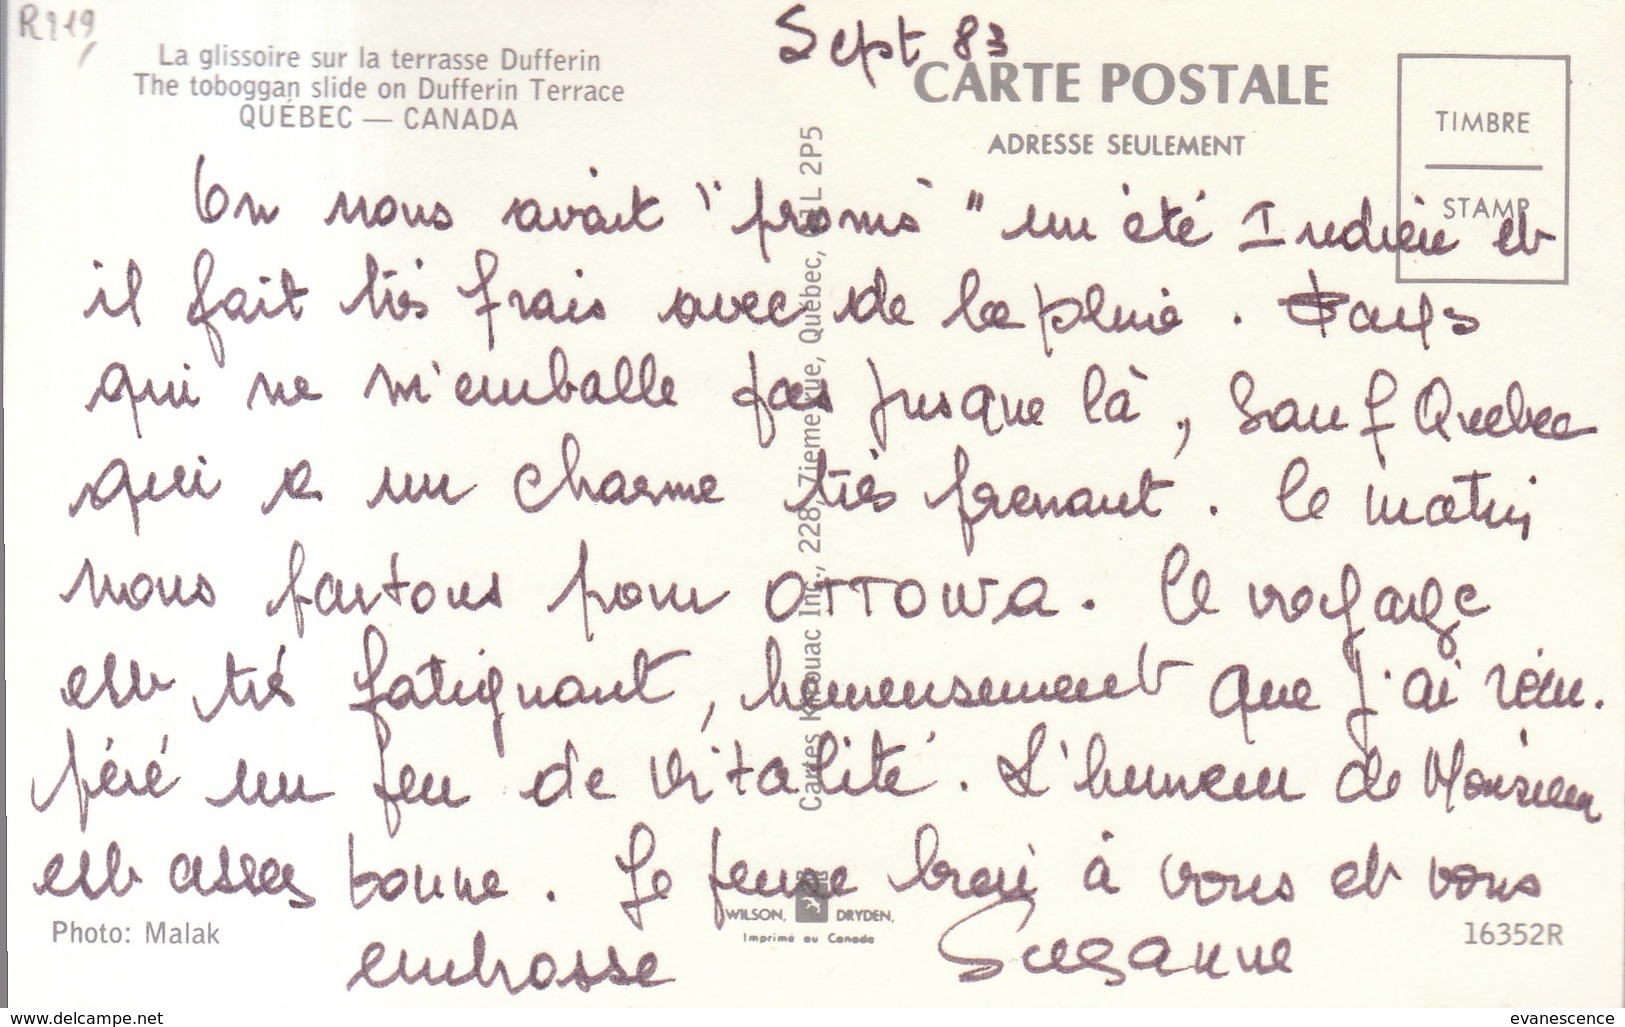 R219
Sept 83
La glissoire sur la terrasse Dufferin
The toboggan slide on Dufferin Terrace
QUÉBEC — CANADA
CARTE POSTALE
ADRESSE SEULEMENT
TIMBRE
STAMP
On nous avait "promis" un été Indien et
il fait très frais avec de la pluie. Pays
qui ne m'emballe pas jusque là, sauf Quebec
qui a un charme très prenant. Le matin
nous partons pour OTTOWA. Le voyage
est très fatiguant, heureusement que j'ai récu.
péré un peu de vitalité. L'humeur de Monsieur
est assez bonne. Je pense bien à vous et vous
embrasse Suzanne
Cartes Kerouac Inc., 228, 7ieme rue, Québec, G1L 2P5
WILSON, DRYDEN,
Imprimé au Canada
Photo: Malak
16352R
www.delcampe.net
evanescence